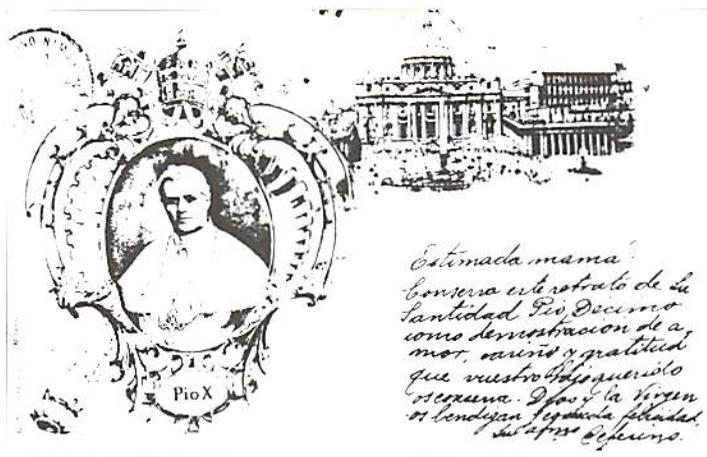 Pio X
Estimada mama
Conserva este retrato de Su
Santidad Pio Decimo
como demostracion de a-
mor, cariño y gratitud
que vuestro hijo querido
os conserva. Dios y la Virgen
os bendigan felicidad.
Su afmo Ceferino.